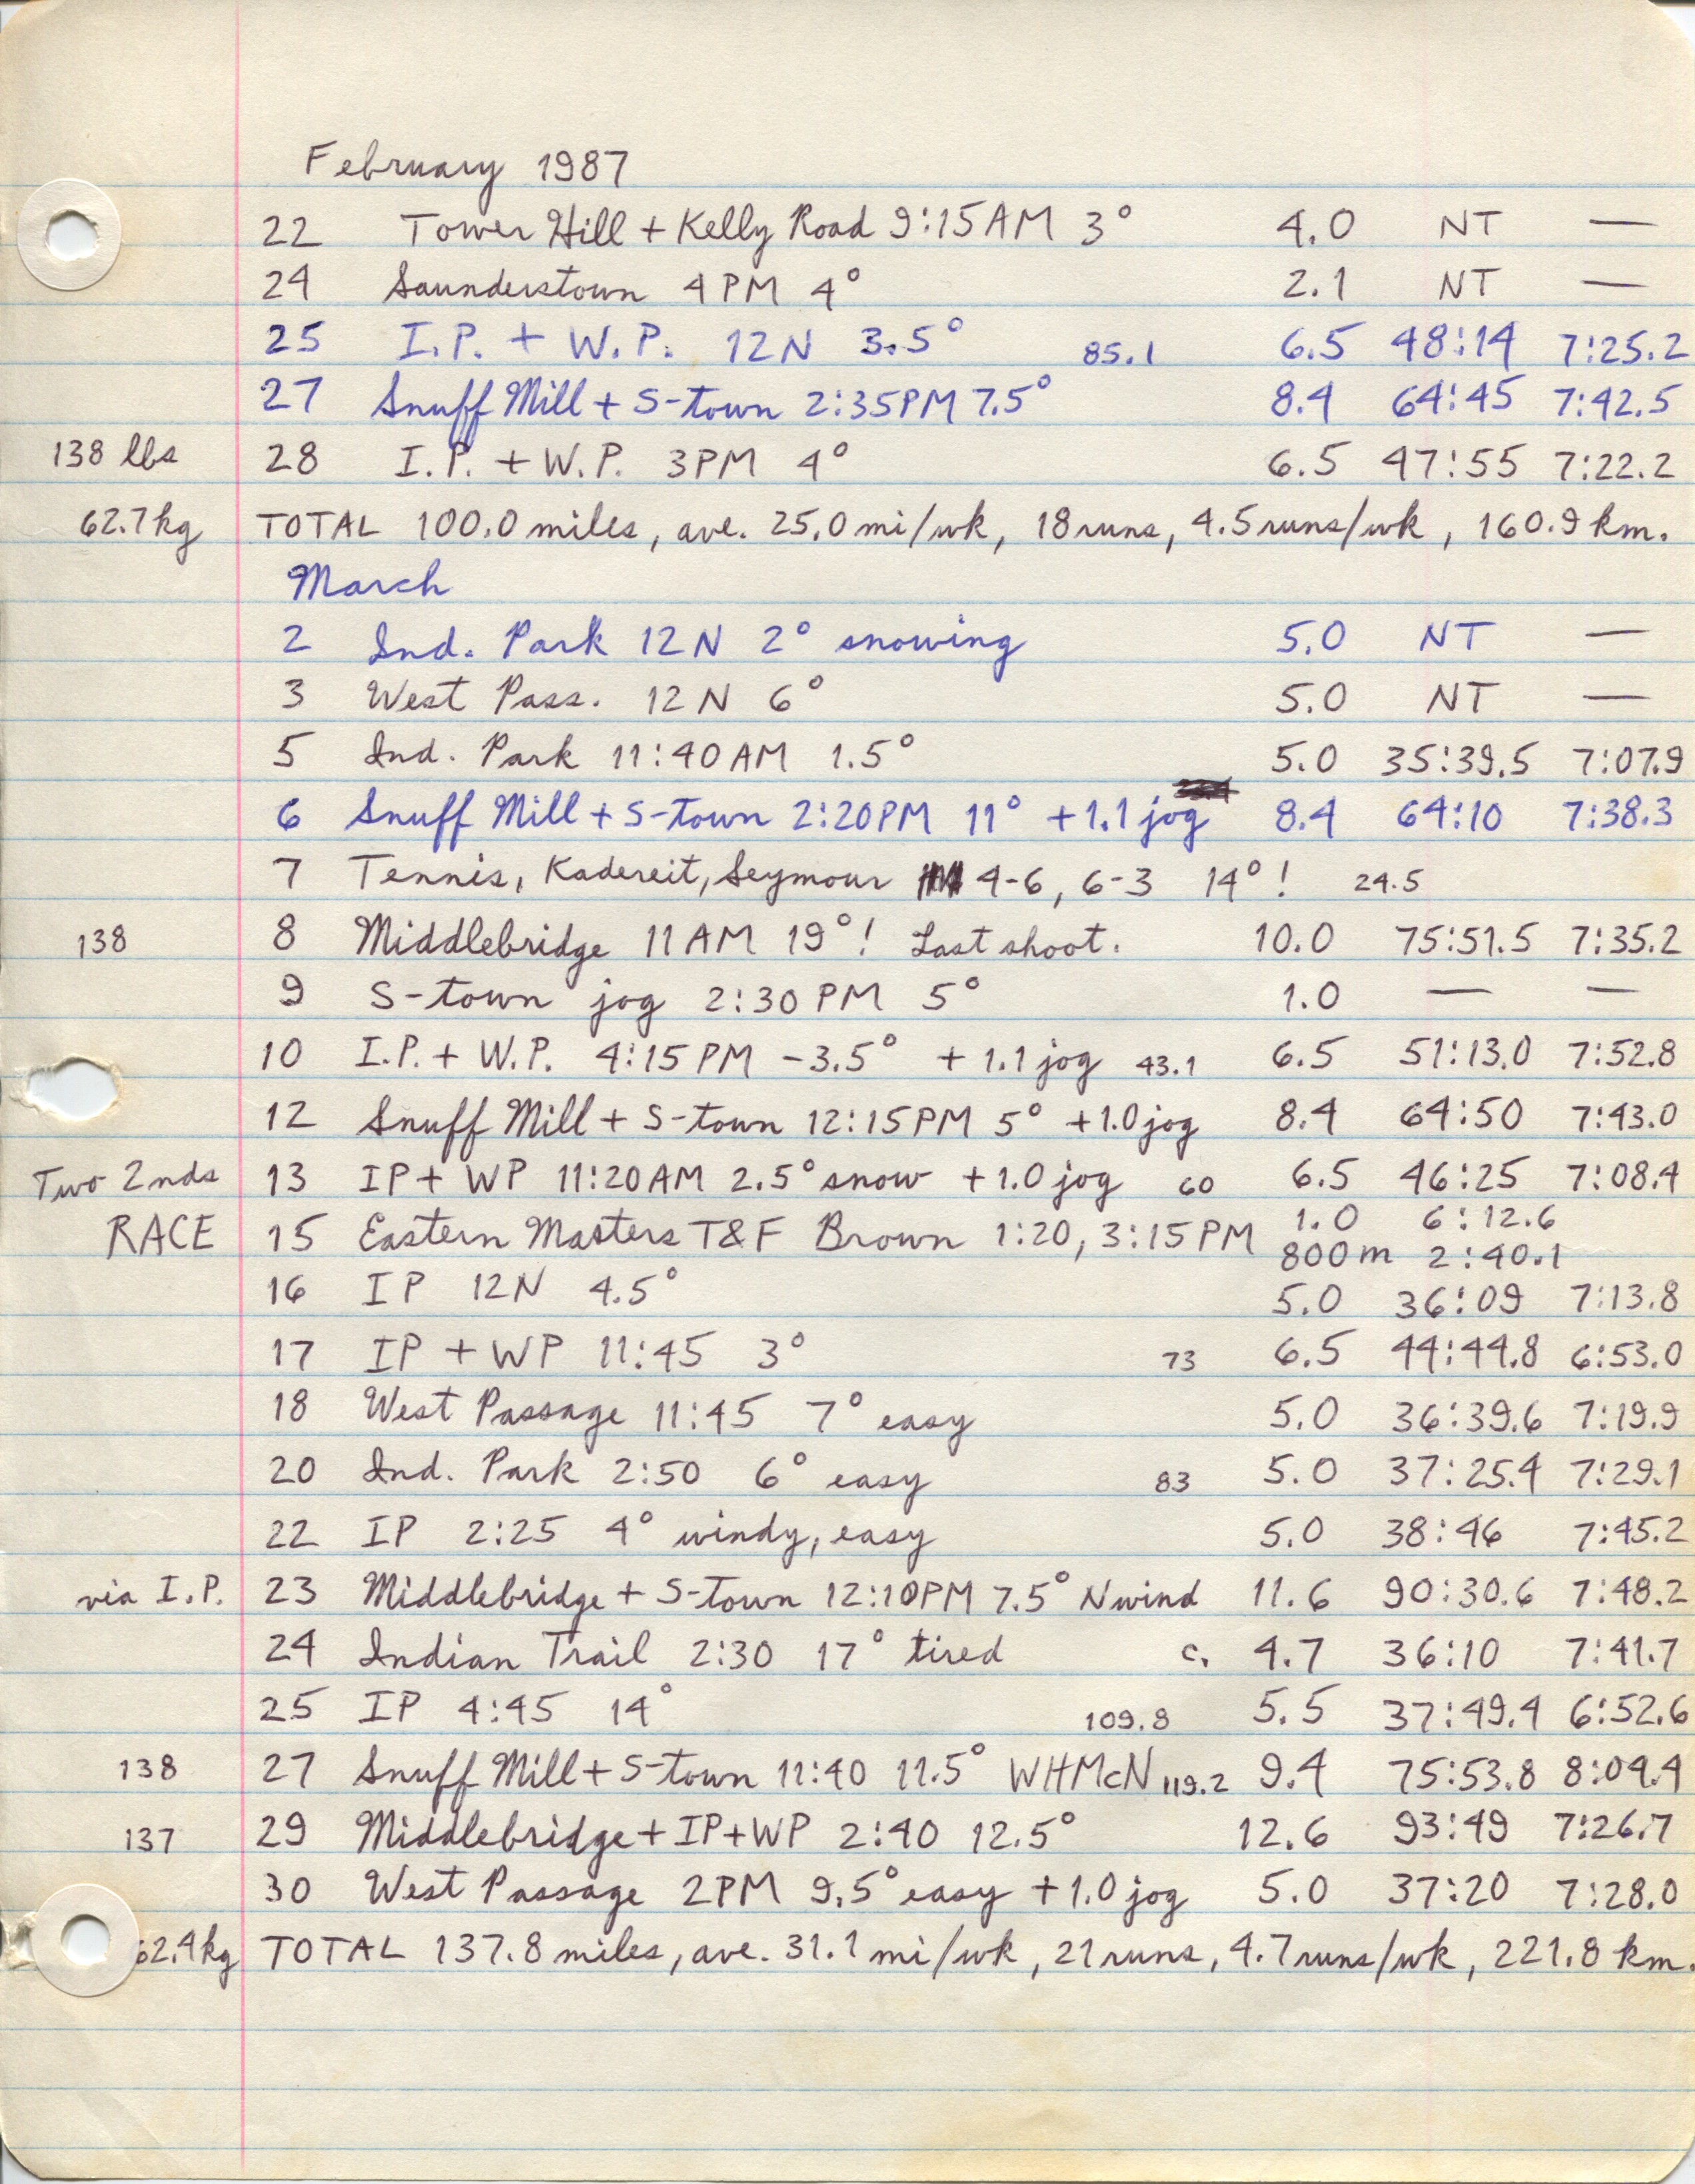 February 1987
22 Tower Hill + Kelly Road 9:15AM 3° 4.0 NT —
24 Saunderstown 4PM 4° 2.1 NT —
25 I.P. + W.P. 12N 3.5° 85.1 6.5 48:14 7:25.2
27 Snuff Mill + S-town 2:35PM 7.5° 8.4 64:45 7:42.5
138 lbs 28 I.P. + W.P. 3PM 4° 6.5 47:55 7:22.2
62.7kg TOTAL 100.0 miles, ave. 25.0 mi/wk, 18 runs, 4.5 runs/wk, 160.9 km.
March
2 Ind. Park 12N 2° snowing 5.0 NT —
3 West Pass. 12N 6° 5.0 NT —
5 Ind. Park 11:40AM 1.5° 5.0 35:39.5 7:07.9
6 Snuff Mill + S-town 2:20PM 11° +1.1 jog 8.4 64:10 7:38.3
7 Tennis, Kadereit, Seymour 4-6, 6-3 14°! 24.5
138 8 Middlebridge 11AM 19°! Last shoot. 10.0 75:51.5 7:35.2
9 S-town jog 2:30PM 5° 1.0 — —
10 I.P. + W.P. 4:15PM -3.5° +1.1 jog 43.1 6.5 51:13.0 7:52.8
12 Snuff Mill + S-town 12:15PM 5° +1.0 jog 8.4 64:50 7:43.0
Two 2nds 13 IP + WP 11:20AM 2.5° snow +1.0 jog 60 6.5 46:25 7:08.4
RACE 15 Eastern Masters T&F Brown 1:20, 3:15PM 1.0 6:12.6
800m 2:40.1
16 IP 12N 4.5° 5.0 36:09 7:13.8
17 IP + WP 11:45 3° 73 6.5 44:44.8 6:53.0
18 West Passage 11:45 7° easy 5.0 36:39.6 7:19.9
20 Ind. Park 2:50 6° easy 83 5.0 37:25.4 7:29.1
22 IP 2:25 4° windy, easy 5.0 38:46 7:45.2
via I.P. 23 Middlebridge + S-town 12:10PM 7.5° N wind 11.6 90:30.6 7:48.2
24 Indian Trail 2:30 17° tired c. 4.7 36:10 7:41.7
25 IP 4:45 14° 109.8 5.5 37:49.4 6:52.6
138 27 Snuff Mill + S-town 11:40 11.5° WHMcN 119.2 9.4 75:53.8 8:04.4
137 29 Middlebridge + IP + WP 2:40 12.5° 12.6 93:49 7:26.7
30 West Passage 2PM 9.5° easy +1.0 jog 5.0 37:20 7:28.0
62.4kg TOTAL 137.8 miles, ave. 31.1 mi/wk, 21 runs, 4.7 runs/wk, 221.8 km.